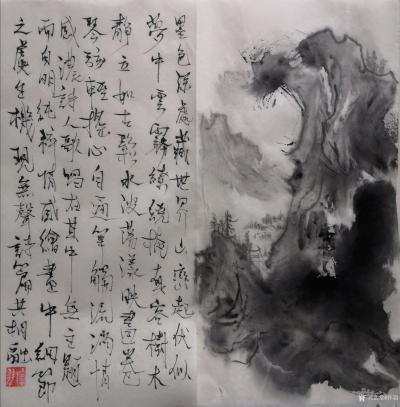 墨色深處藏世界山巒起伏似
夢中雲霧繚繞掩真容樹木
靜立如古松水波蕩漾映畫卷
琴弦輕撥心自通筆觸流淌情
感濃詩人歌唱在其中無主題
而自明純粹情感繪畫中細節
之處生機現無聲詩篇共相融